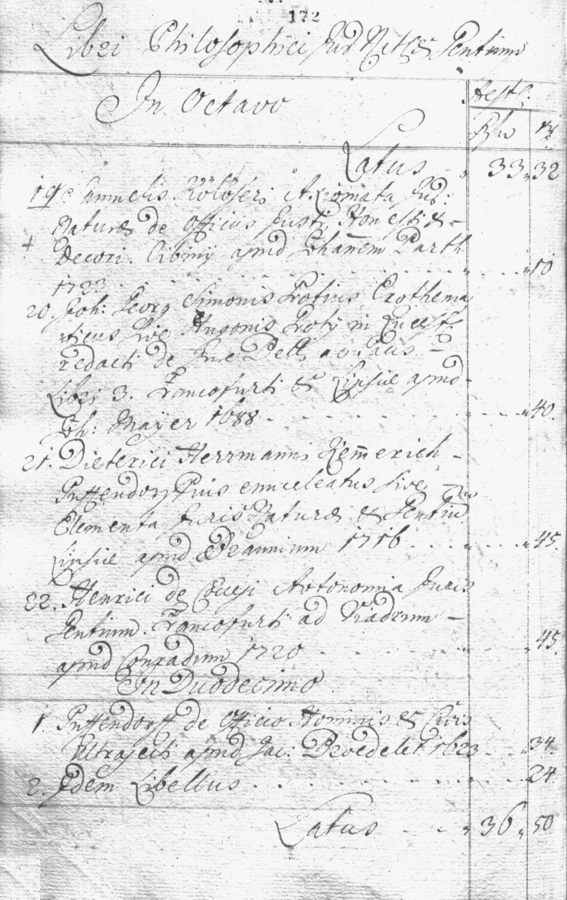 172
Libri Philosophici Jur Nat & Gentium
In Octavo
Rfl.
Latus 33 " 32
19. Samuelis Köleseri Axiomata Jur:
Naturæ de Officiis Justi Honesti &
Decori. Cibinij apud Johannem Barth
1723 . . . . 10
20. Joh: Georg Simonis Grotius Erothema
ticus sive Hugonis Grotij in Quæst.
redacti de Jure Belli ac Pacis
Libri 3. Francofurti & Lipsiæ apud
Joh: Mayer 1688 . . . . 40.
21. Dieterici Herrmanni Kem̄erich
Puffendorffius enucleatus sive
Elementa Juris Naturæ & Gentiū
Lipsiæ apud 1716 . . . . 45.
22. Henrici de Cocceji Avtonomia Juris
Gentium. Francofurti ad Viadrum
apud Conradum 1720 . . . . 45.
In Duodecimo
1. Puffendorff de Officio Hominis & Civis
Ultrajecti apud Jac. . . 34.
2. Idem Libellus . . . . 24.
Latus . . . " 36 " 50